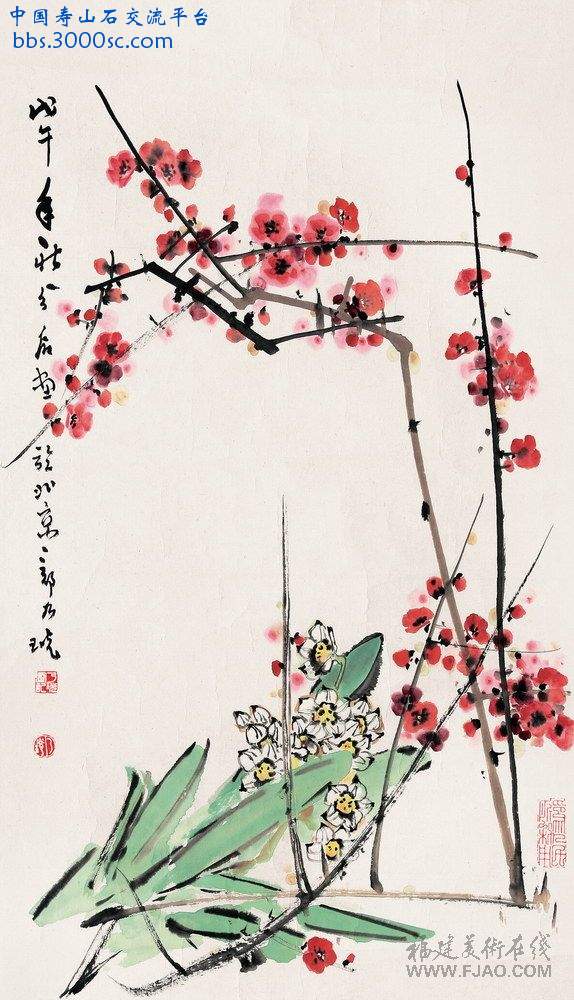 中国寿山石交流平台
bbs.3000sc.com
戊午年秋分后画于北京郭石琥
福建美術在线
WWW.FJAO.COM